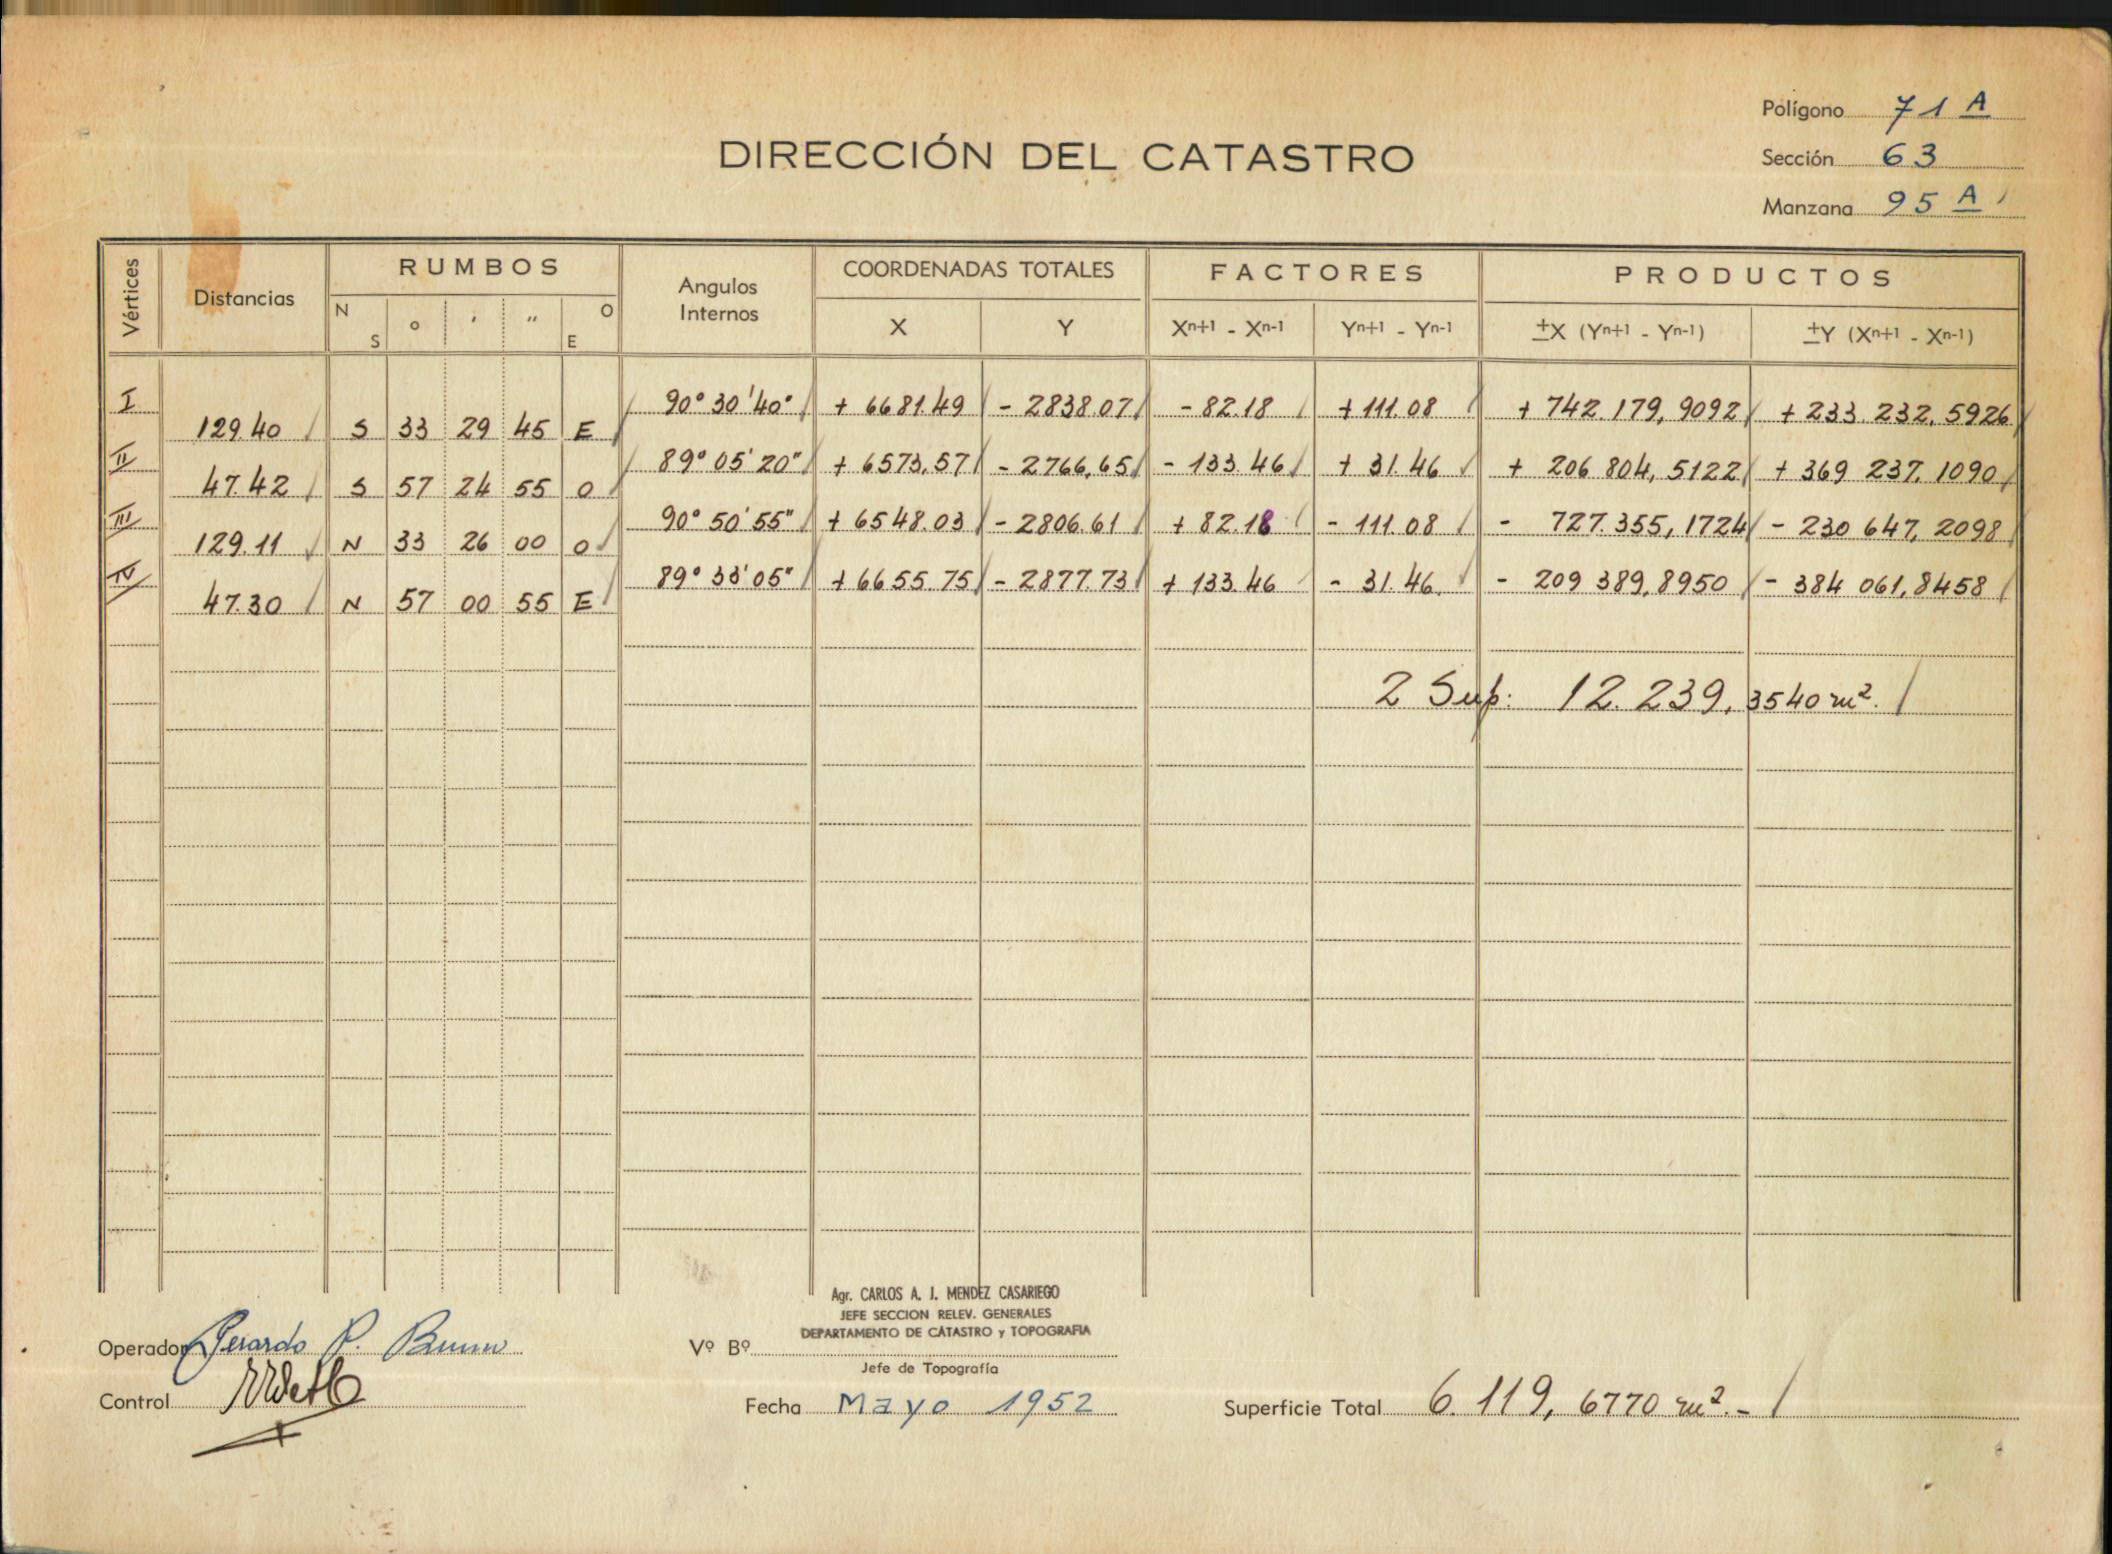 Polígono 71 A
DIRECCIÓN DEL CATASTRO
Sección 63
Manzana 95 A
Vértices Distancias RUMBOS Angulos Internos COORDENADAS TOTALES FACTORES PRODUCTOS
N S ° ' " O E X Y Xn+1 - Xn-1 Yn+1 - Yn-1 ±X (Yn+1 - Yn-1) ±Y (Xn+1 - Xn-1)
I 90° 30' 40" + 6681.49 - 2838.07 - 82.18 + 111.08 + 742.179,9092 + 233.232,5926
129.40 S 33 29 45 E
II 89° 05' 20" + 6573,57 - 2766,65 - 133.46 + 31.46 + 206 804,5122 + 369 237,1090
47.42 S 57 24 55 O
III 90° 50' 55" + 6548.03 - 2806.61 + 82.18 - 111.08 - 727.355,1724 - 230 647,2098
129.11 N 33 26 00 O
IV 89° 33' 05" + 6655.75 - 2877.73 + 133.46 - 31.46 - 209 389,8950 - 384 061,8458
47.30 N 57 00 55 E
2 Sup: 12.239,3540 m².
Agr. CARLOS A. J. MENDEZ CASARIEGO
JEFE SECCION RELEV. GENERALES
DEPARTAMENTO DE CATASTRO y TOPOGRAFIA
Operador Gerardo P.
Vº Bº
Jefe de Topografía
Control
Fecha Mayo 1952
Superficie Total 6.119,6770 m².-